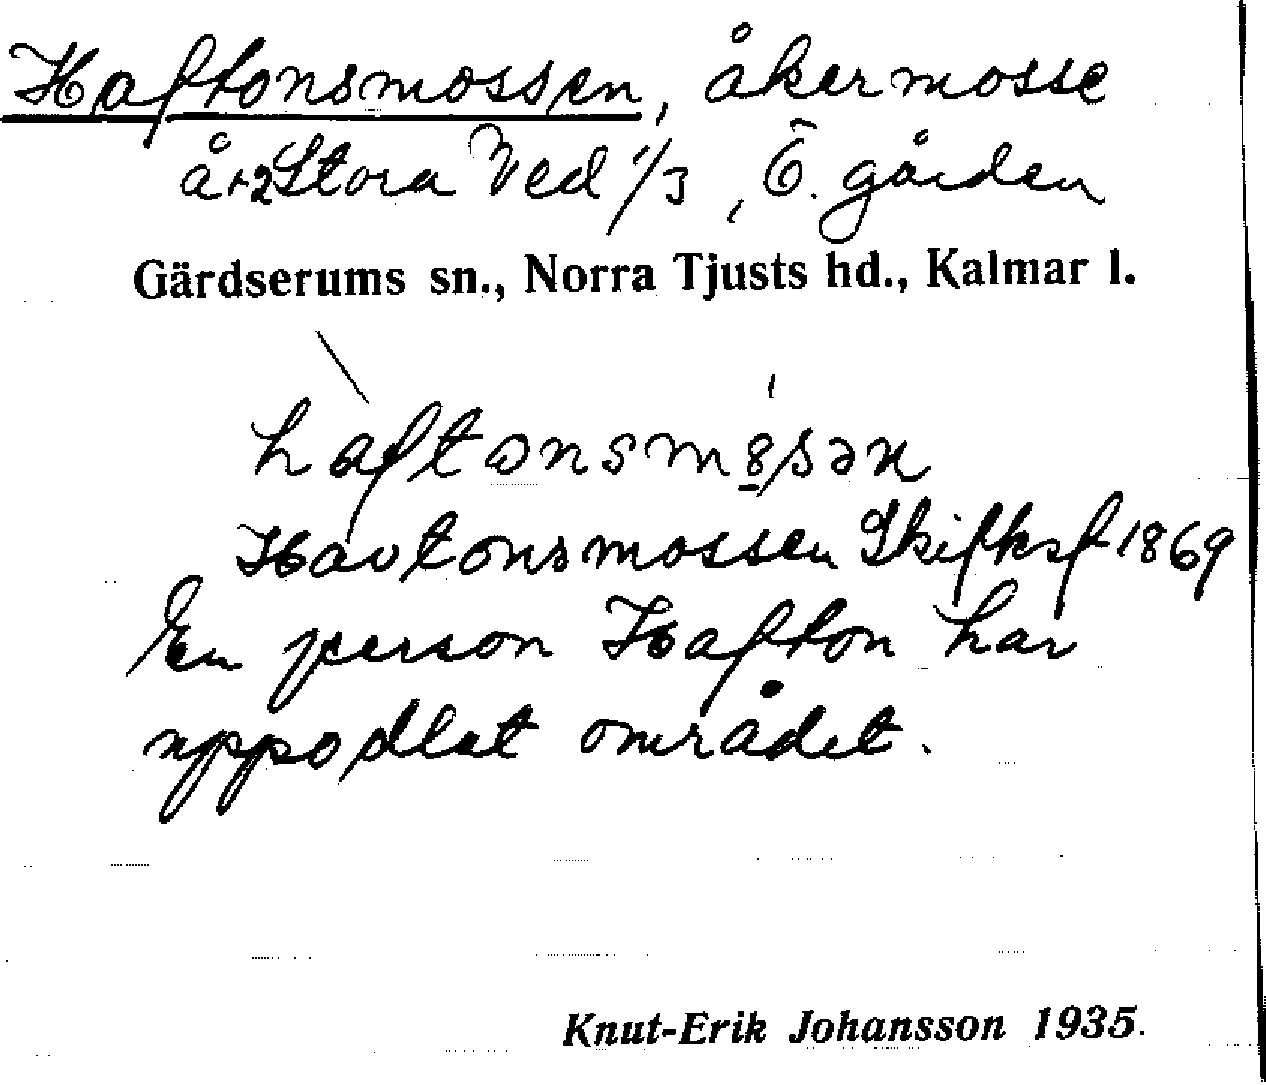 Haftonsmossen, åkermosse
å 2 Stora Ved 1/3, Ö. gården
Gärdserums sn., Norra Tjusts hd., Kalmar l.
haftonsm8sən
Havtonsmossen Skifksf 1869
En person Hafton har
uppodlat området.
Knut-Erik Johansson 1935.